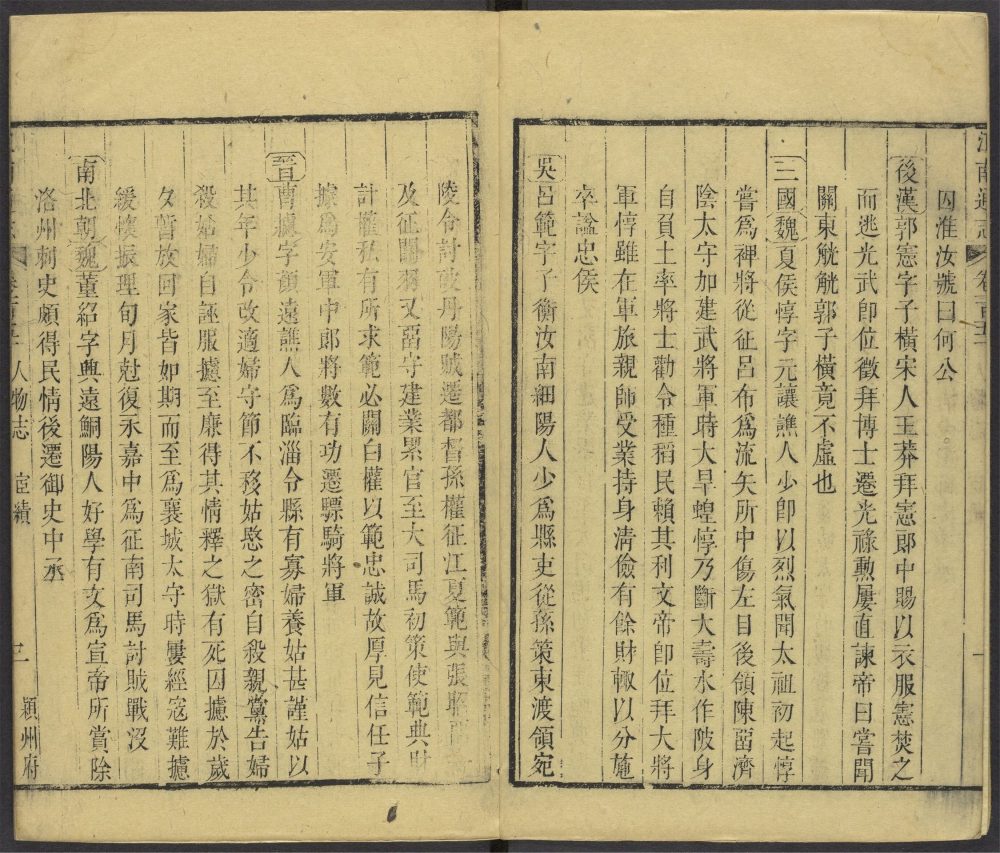 江南通志 卷一百五十 一
囚淮汝號曰何公
後漢郭憲字子橫宋人王莽拜憲郎中賜以衣服憲焚之
而逃光武即位徵拜博士遷光祿勲屢直諫帝曰嘗聞
關東觥觥郭子橫竟不虛也
三國魏夏侯惇字元讓譙人少即以烈氣聞太祖初起惇
嘗爲裨將從征呂布爲流矢所中傷左目後領陳畱濟
陰太守加建武將軍時大旱蝗惇乃斷大壽水作陂身
自負土率將士勸令種稻民賴其利文帝即位拜大將
軍惇雖在軍旅親師受業持身清儉有餘財輙以分施
卒諡忠侯
吳呂範字子衡汝南細陽人少爲縣吏從孫策東渡領宛
陵令討破丹陽賊遷都督孫權征江夏範與張昭
及征關羽又畱守建業累官至大司馬初策使範典財
計權私有所求範必關白權以範忠誠故厚見信任子
據爲安軍中郎將數有功遷驃騎將軍
晉曹攄字顏遠譙人爲臨淄令縣有寡婦養姑甚謹姑以
其年少令改適婦守節不移姑愍之密自殺親黨告婦
殺姑婦自誣服攄至廉得其情釋之獄有死囚攄於歲
夕暫放回家皆如期而至爲襄城太守時屢經寇難攄
綏懷振理旬月尅復永嘉中爲征南司馬討賊戰沒
南北朝魏董紹字興遠鮦陽人好學有文爲宣帝所賞除
洛州刺史頗得民情後遷御史中丞
人物志 宦績 三 潁州府